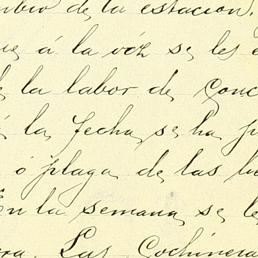 de la estacion.
que á la vóz se les
la labor de Conc
á la fecha se ha p
ó plaga de las
En la semana se le
Las Cochinera